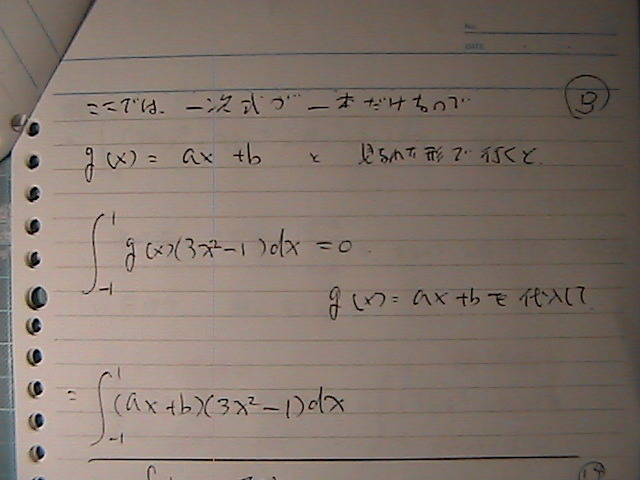 NO.
DATE
ここでは、一次式が一本だけあるので ③
g(x) = ax + b と 見られた形で行くと、
∫_{-1}^{1} g(x)(3x²-1)dx = 0
g(x) = ax + b を代入して
= ∫_{-1}^{1} (ax+b)(3x²-1)dx